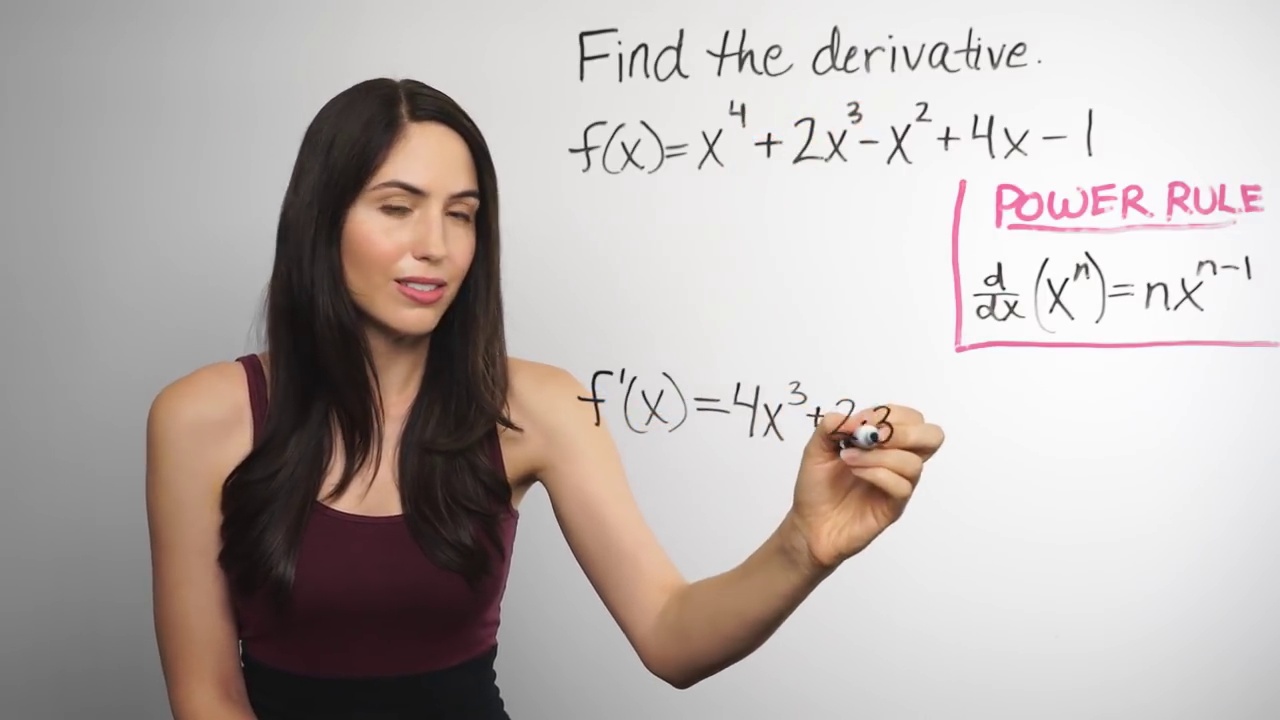 Find the derivative.
f(x)=x⁴+2x³-x²+4x-1
POWER RULE
d/dx(xⁿ)=nxⁿ⁻¹
f'(x)=4x³+2·3